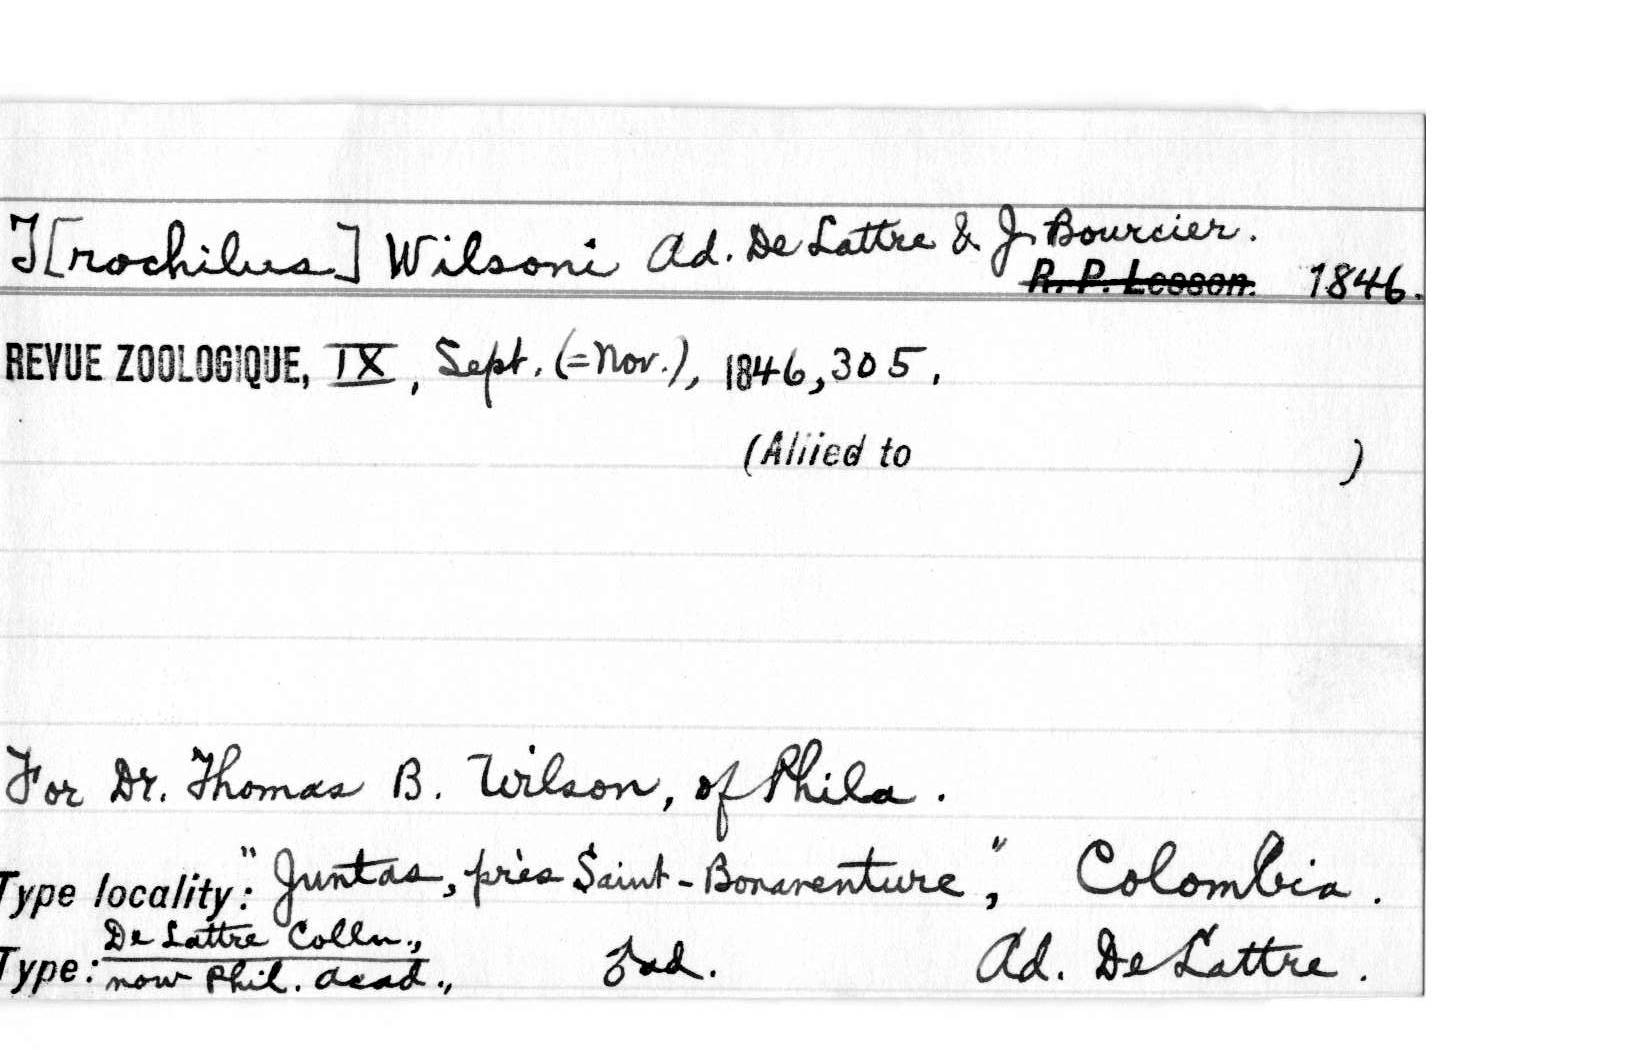 T[rochilus] Wilsoni Ad. De Lattre & J. Bourcier.
R. P. Lesson. 1846.
REVUE ZOOLOGIQUE, IX, Sept. (=Nov.), 1846, 305.
(Allied to )
For Dr. Thomas B. Wilson, of Phila.
Type locality: "Juntas, près Saint-Bonaventure", Colombia.
De Lattre Colln.,
Type: now Phil. Acad., ad. Ad. De Lattre.